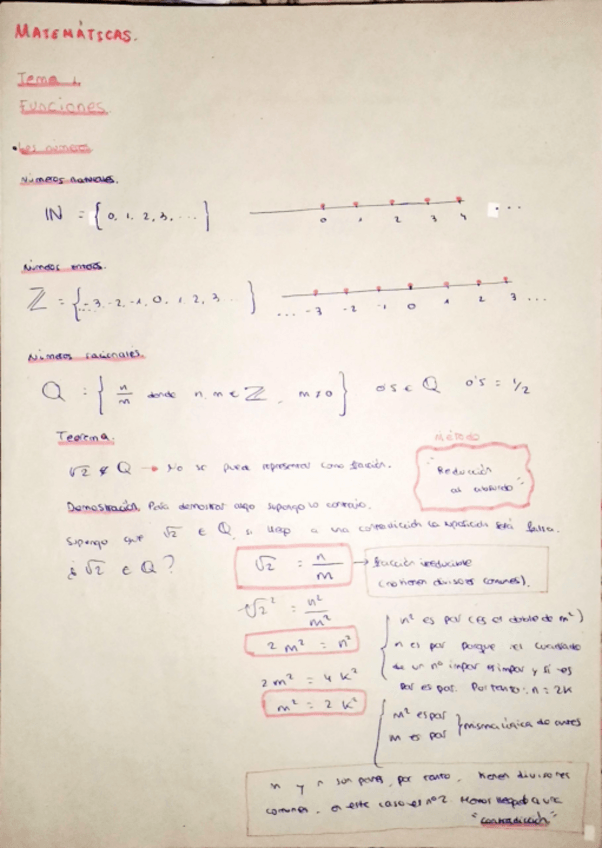 MATEMÁTICAS.
Tema 1.
Funciones
• Los números
Números naturales.
ℕ = { 0, 1, 2, 3, ... }
0 1 2 3 4 ...
Números enteros.
ℤ = {... -3, -2, -1, 0, 1, 2, 3 ... }
... -3 -2 -1 0 1 2 3 ...
Números racionales.
Q = { n/m donde n, m ∈ ℤ, m≠0 } 0'5 ∈ Q 0'5 = 1/2
Teorema.
√2 ∉ Q → No se puede representar como fracción.
Método
"Reducción
al absurdo"
Demostración. Para demostrar algo supongo lo contrario.
Supongo que √2 ∈ Q, si llego a una contradicción la suposición será falsa.
¿√2 ∈ Q?
√2 = n/m → fracción irreducible
(no tienen divisores comunes).
√2² = n²/m²
2m² = n²
n² es par (es el doble de m²)
n es par porque el cuadrado
de un nº impar es impar y si es
par es par. Por tanto: n = 2k
2m² = 4k²
m² = 2k²
m² es par
m es par } misma lógica de antes
m y n son pares, por tanto, tienen divisores
comunes, en este caso el nº 2. Hemos llegado a una
"contradicción"